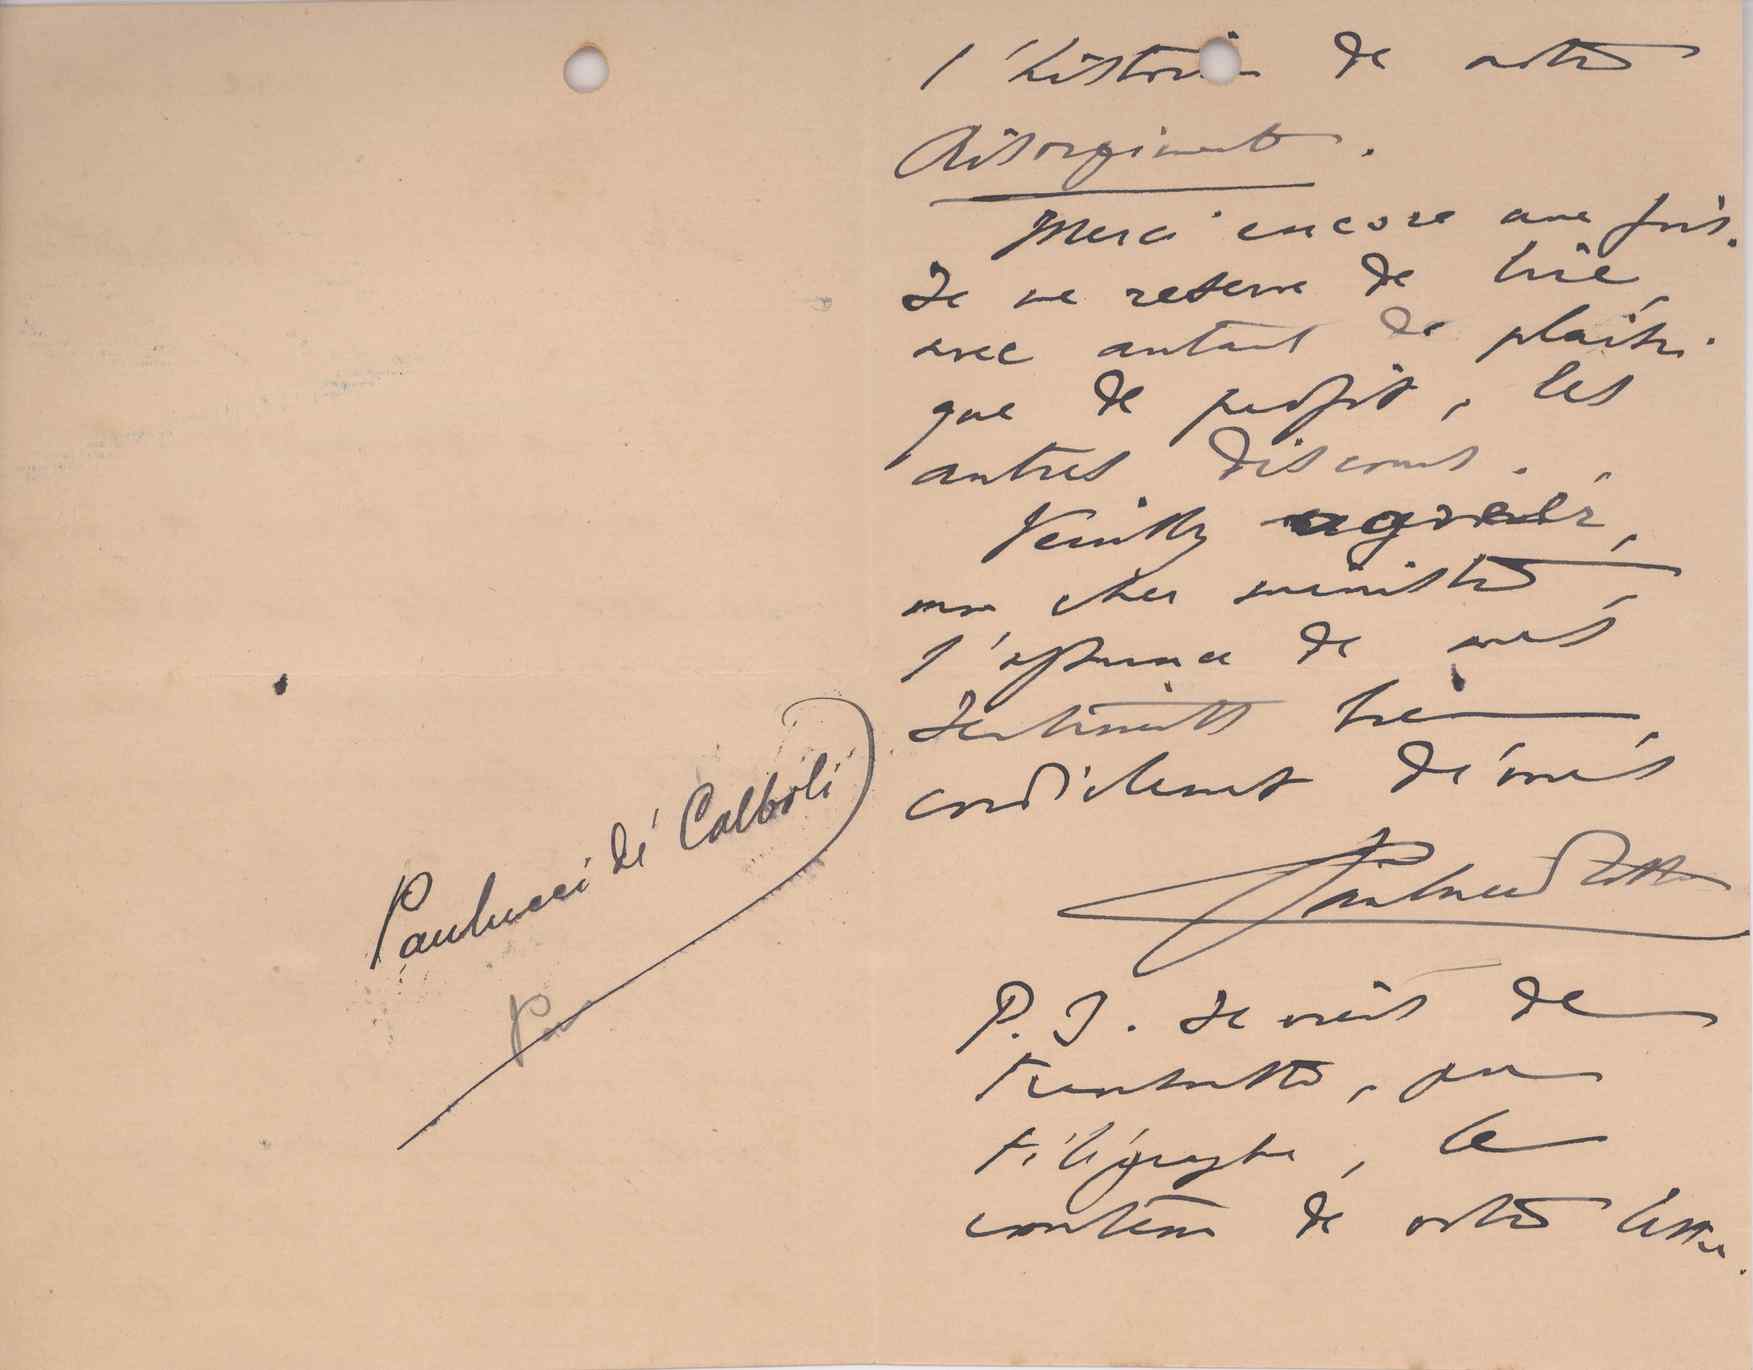 Paulucci dé Calboli
l'histoire de notre
Risorgimento.
Merci encore une fois.
Je me reserve de lire,
avec autant de plaisir
que de profit, les
autres discours.
Veuillez agréér,
mon cher ministre,
l'assurance de mes
sentiments tres
cordialement dévoués
Paulucci
P. S. Je viens de
transmettre, par
télégraphe, le
contenu de votre lettre.